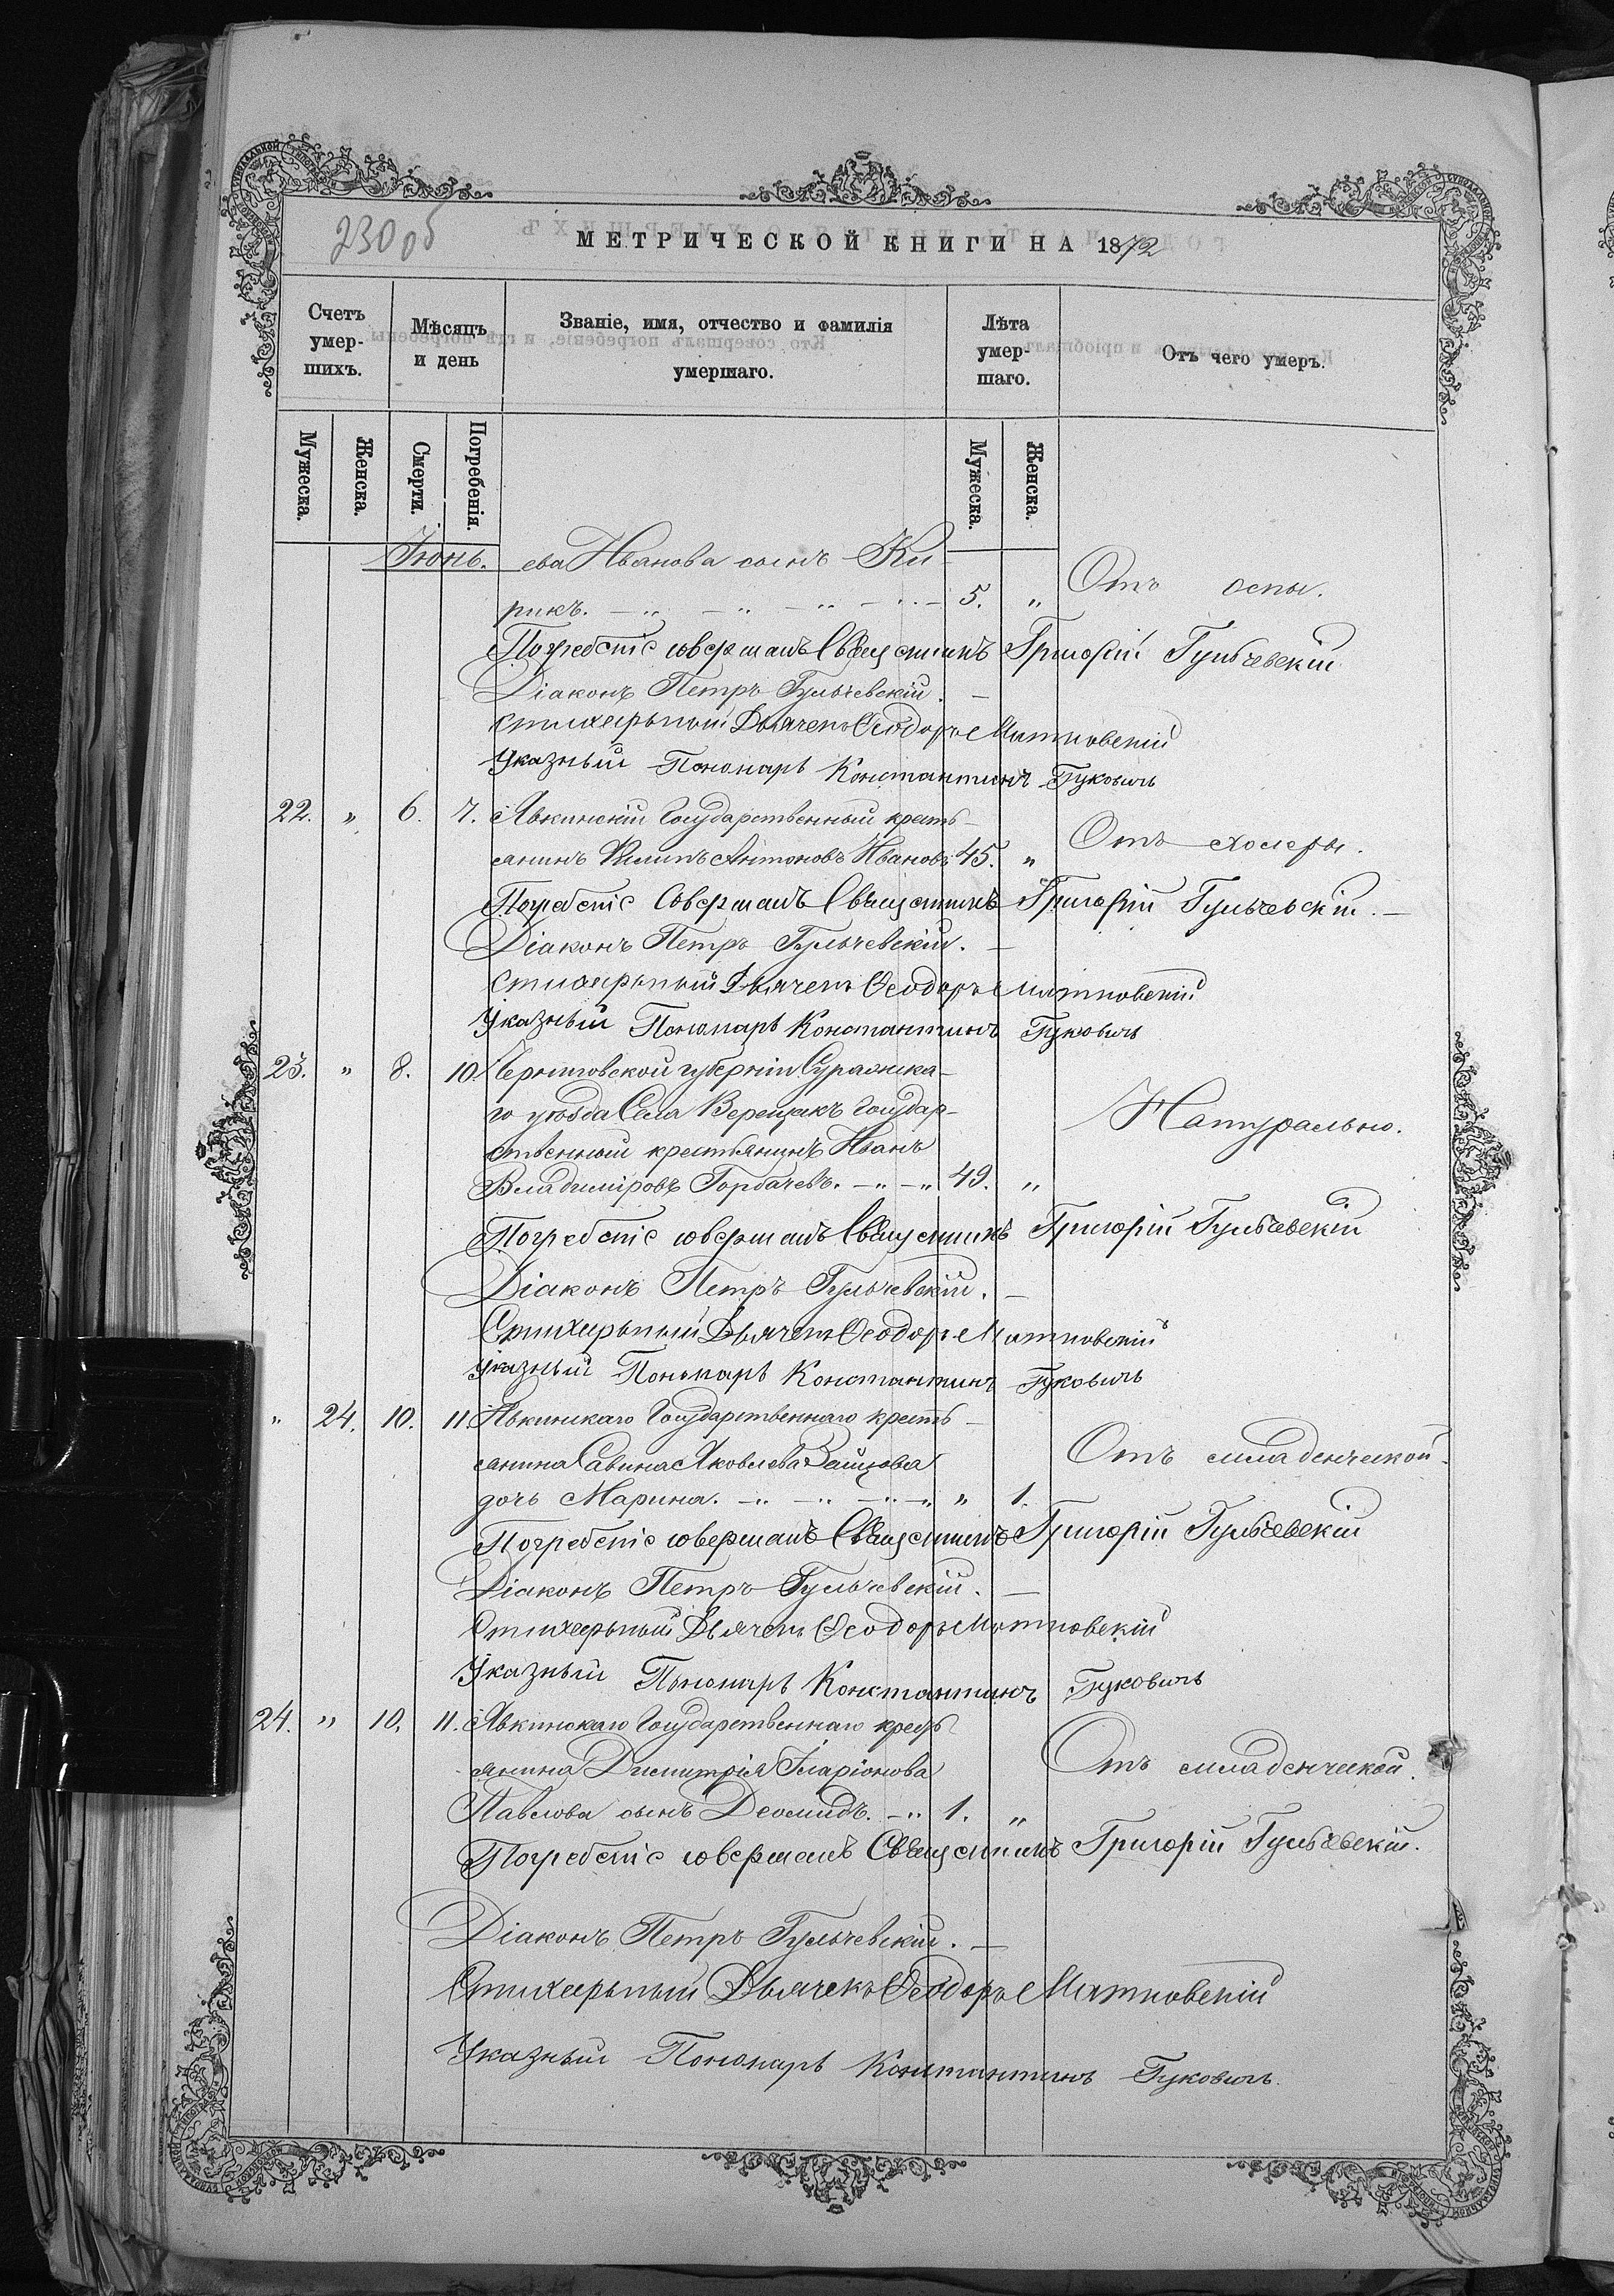 230 об
МЕТРИЧЕСКОЙ КНИГИ НА 1872
Счетъ умер-шихъ.
Мѣсяцъ и день
Званіе, имя, отчество и фамилія умершаго.
Лѣта умер-шаго.
Отъ чего умеръ.
Мужеска.
Женска.
Смерти.
Погребенія.
Мужеска.
Женска.
Іюнь. ева Иванова сынъ Ки-
рикъ. 5. " Отъ оспы.
Погребеніе совершалъ Священникъ Григорій Гульчевскій
Діаконъ Петръ Гульчевскій.
Стихарный Дьячекъ Ѳеодоръ Мятковскій
Указный Пономарь Константинъ Гуковичъ
22. " 6. 7. Явкинскій Государственный кресть-
янинъ Филипъ Антоновъ Ивановъ 45. " Отъ холеры.
Погребеніе Совершалъ Священникъ Григорій Гульчевскій.
Діаконъ Петръ Гульчевскій.
Стихарный Дьячекъ Ѳеодоръ Мятковскій
Указный Пономарь Константинъ Гуковичъ
23. " 8. 10. Черниговской губерніи Суражска-
го уѣзда Села Верещакъ Государ-
ственный крестьянинъ Иванъ Натурально.
Владиміровъ Горбачевъ. 49. "
Погребеніе совершалъ Священникъ Григорій Гульчевскій
Діаконъ Петръ Гульчевскій.
Стихарный Дьячекъ Ѳеодоръ Мятковскій
Указный Пономарь Константинъ Гуковичъ
" 24. 10. 11. Явкинскаго Государственнаго кресть-
янина Савина Яковлева Зайцова Отъ младенческой.
дочь Марина. " 1.
Погребеніе совершалъ Священникъ Григорій Гульчевскій
Діаконъ Петръ Гульчевскій.
Стихарный Дьячекъ Ѳеодоръ Мятковскій
Указный Пономарь Константинъ Гуковичъ
24. " 10. 11. Явкинскаго Государственнаго кресть-
янина Димитрія Иларіонова Отъ младенческой.
Павлова сынъ Деомидъ. 1. "
Погребеніе совершалъ Священникъ Григорій Гульчевскій.
Діаконъ Петръ Гульчевскій.
Стихарный Дьячекъ Ѳеодоръ Мятковскій
Указный Пономарь Константинъ Гуковичъ.